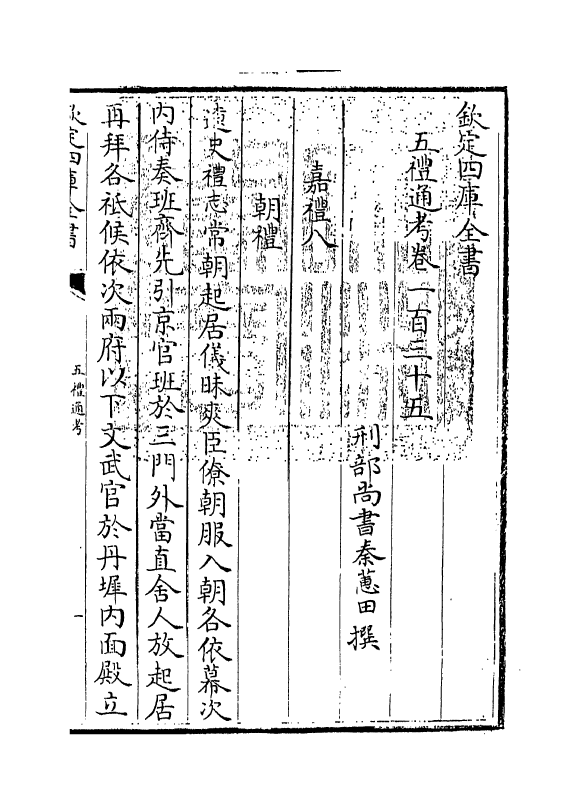 欽定四庫全書
五禮通考卷一百三十五
刑部尚書秦蕙田撰
嘉禮八
朝禮
遼史禮志常朝起居儀昧爽臣僚朝服入朝各依幕次
內侍奏班齊先引京官班於三門外當直舍人放起居
再拜各祗候依次兩府以下文武官於丹墀內面殿立
欽定四庫全書
五禮通考
一